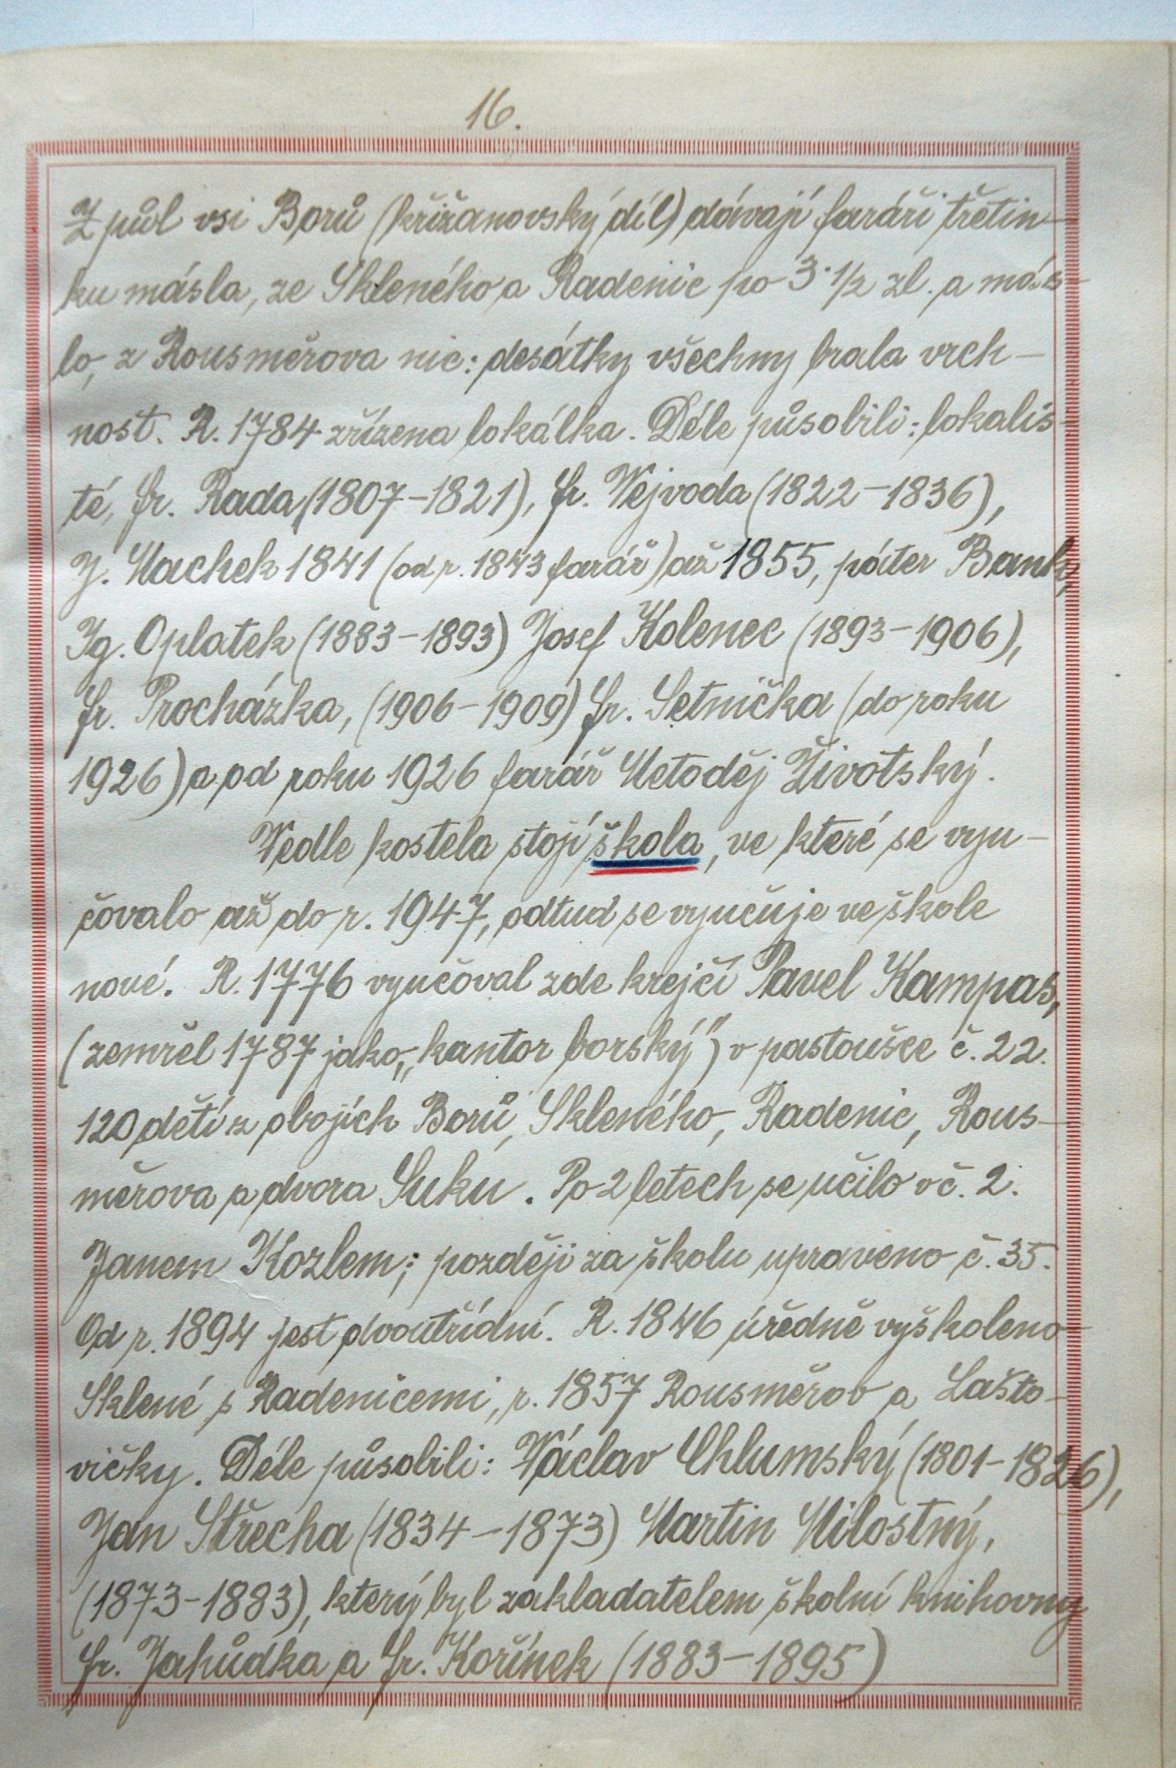 16.
Z půl vsi Borů (křižanovský díl) dávají faráři třetin-
ku másla, ze Skleného a Radenic po 3·1/2 zl. a más-
lo, z Rousměrova nic: desátky všechny brala vrch-
nost. R. 1784 zřízena lokálka. Déle působili: lokalis-
té, fr. Rada (1807-1821), fr. Vejvoda (1822-1836),
J. Machek 1841 (od r. 1843 farář) až 1855, páter Bank,
Ig. Oplatek (1883-1893) Josef Kolenec (1893-1906),
fr. Procházka, (1906-1909) fr. Setnička (do roku
1926) a od roku 1926 farář Metoděj Životský.
Vedle kostela stojí škola, ve které se vyu-
čovalo až do r. 1947, odtud se vyučuje ve škole
nové. R. 1776 vyučoval zde krejčí Pavel Kampas,
(zemřel 1787 jako „kantor borský") v pastoušce č. 22.
120 dětí z obojích Borů, Skleného, Radenic, Rous-
měrova a dvora Suku. Po 2 letech se učilo v č. 2.
Janem Kozlem; později za školu upraveno č. 35.
Od r. 1894 jest dvoutřídní. R. 1846 úředně vyškoleno
Sklené s Radenicemi, r. 1857 Rousměrov a Lašto-
vičky. Déle působili: Václav Chlumský (1801-1826),
Jan Střecha (1834-1873) Martin Milostný,
(1873-1883), který byl zakladatelem školní knihovny
fr. Jahůdka a fr. Kořínek (1883-1895)